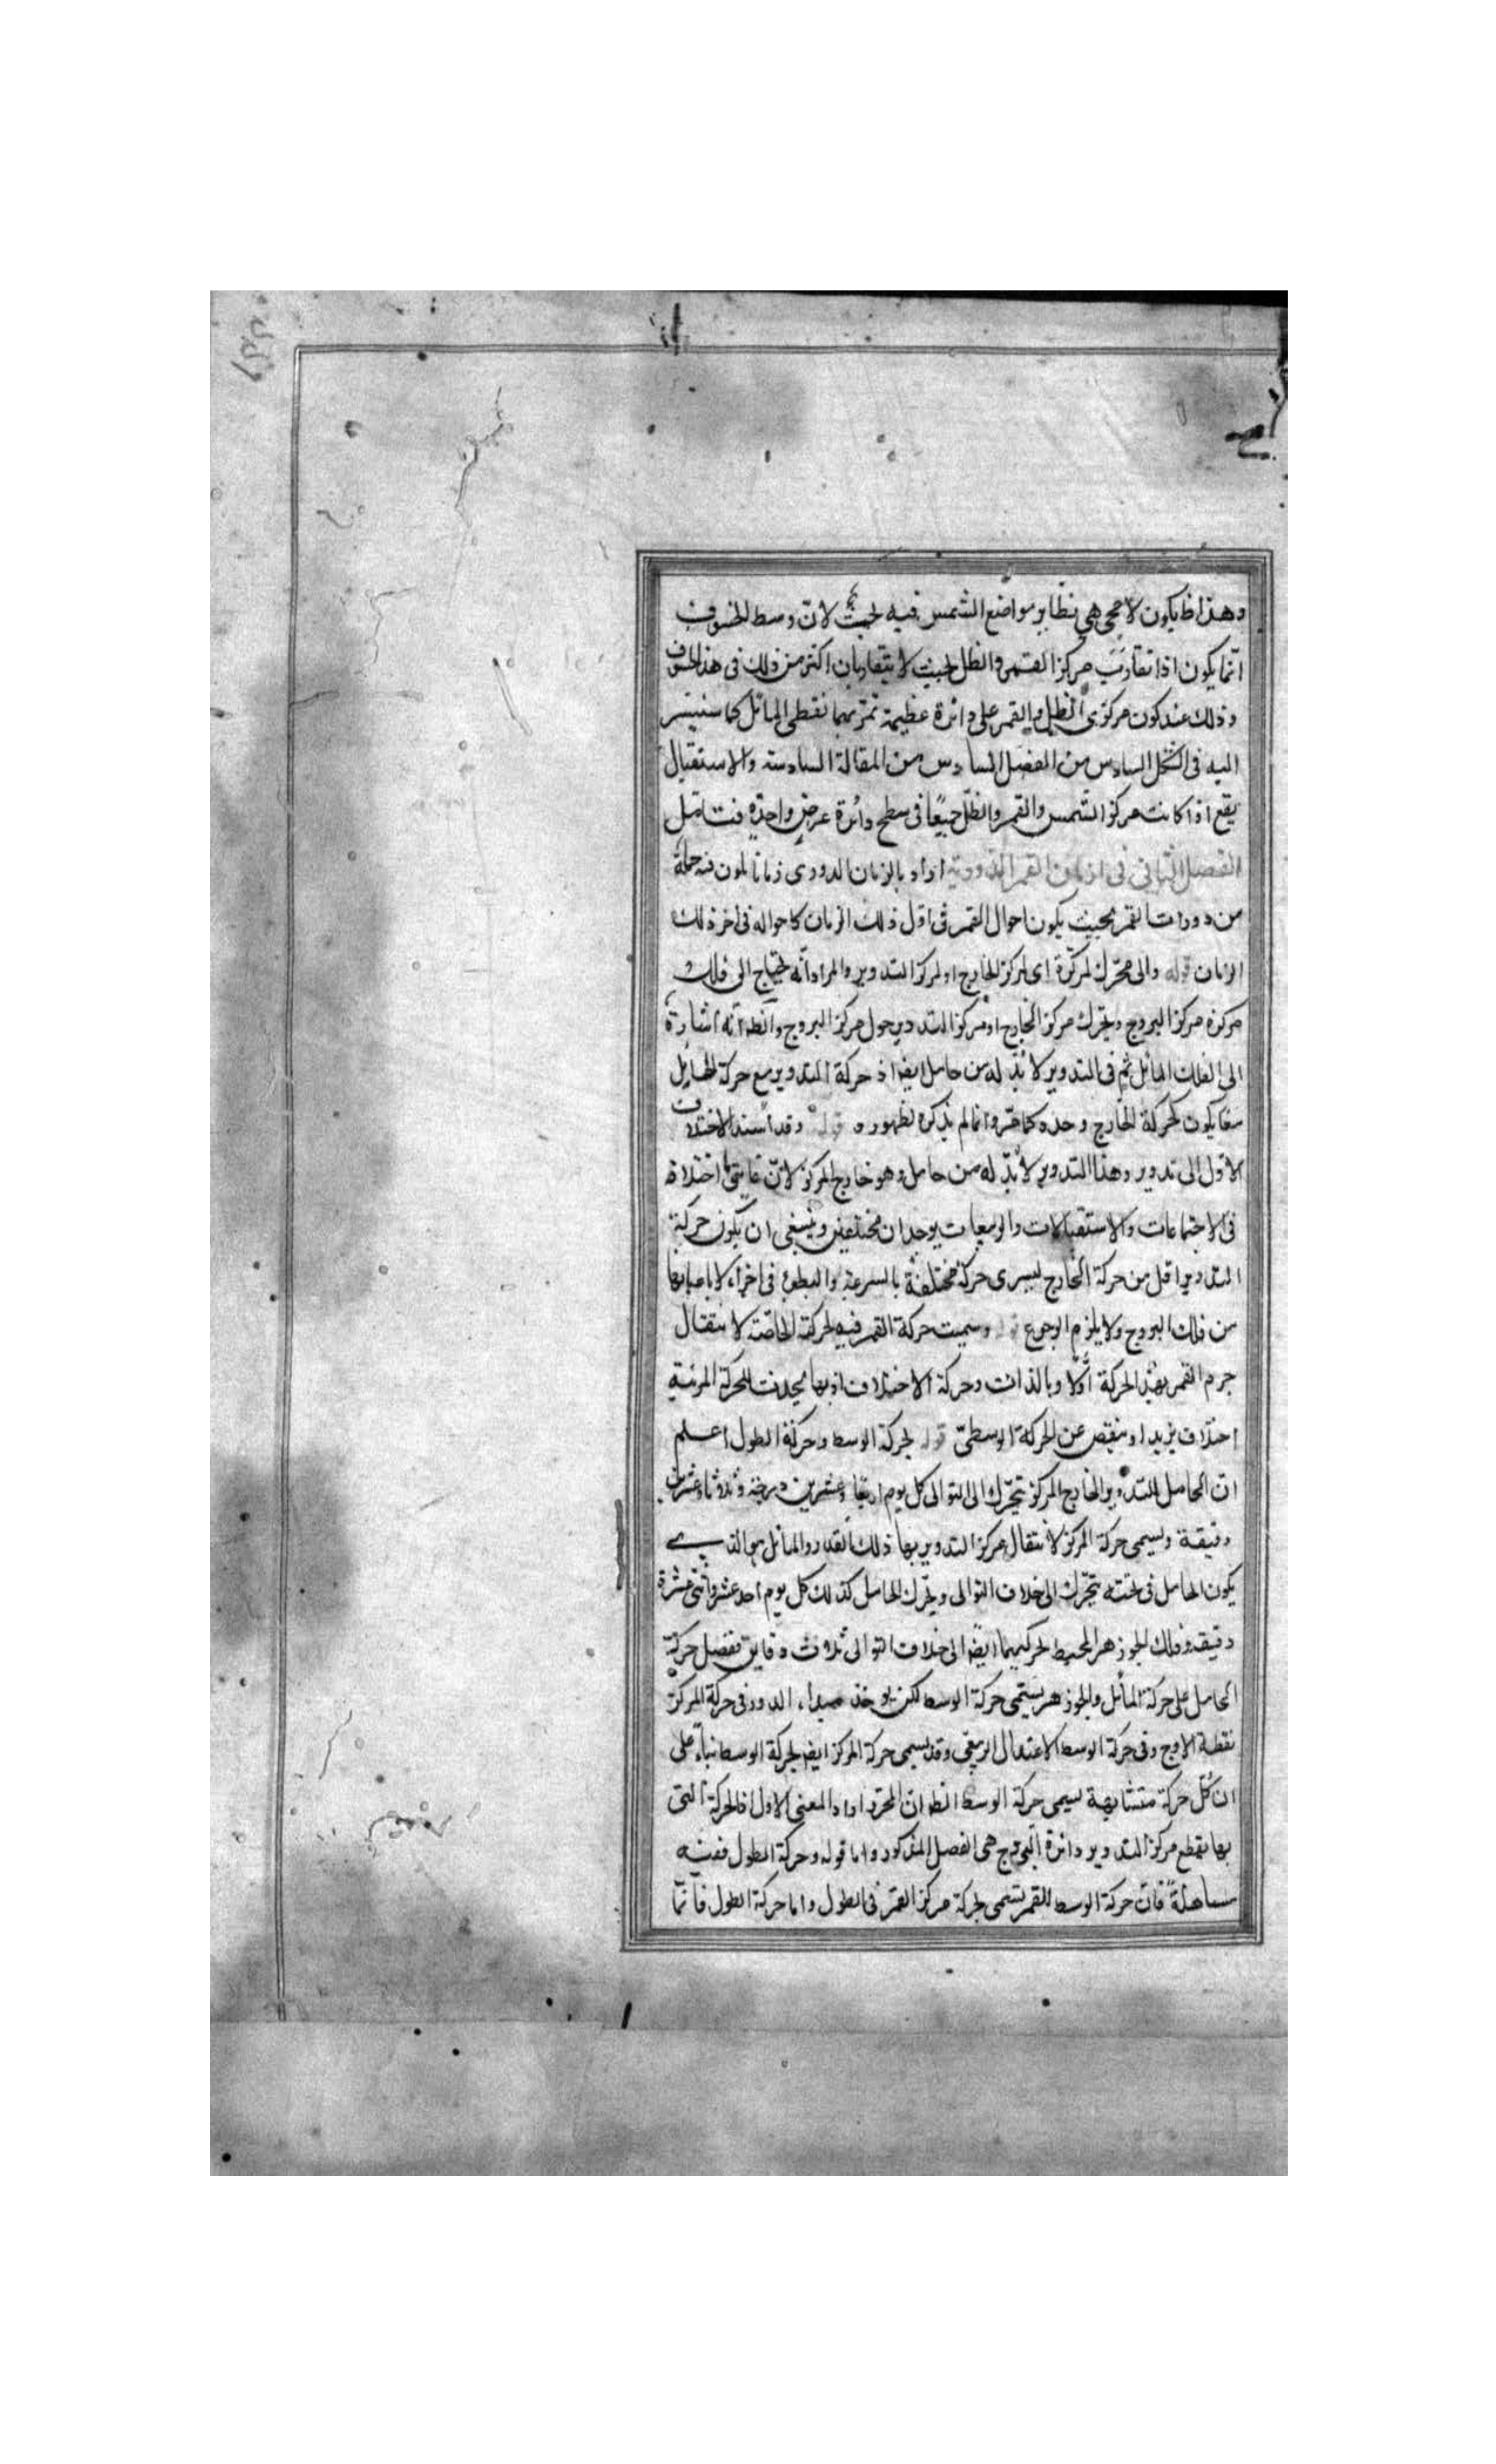 وهذا ظ يكون لا محى هي نظاير مواضع الشمس فيه بحث لان وسط الخسوف
انما يكون اذا تقارب مركز القمر والظل بحيث لا يتقاربان اكثر من ذلك فى هذا الخسوف
وذلك عند كون مركزى الظل والقمر على دائرة عظيمة تمر بهما نقطى المائل كما سنشير
اليه فى الشكل السادس من الفصل السادس من المقالة السادسة والاستقبال
يقع اذا كانت مركز الشمس والقمر والظل جميعا فى سطح دائرة عرض واحدة فتامل
الفصل الثانى فى ازمان القمر الدورية اراد بالزمان الدورى زمانا يكون فيه جملة
من دورات القمر بحيث يكون احوال القمر فى اول ذلك الزمان كاحواله فى اخر ذلك
الزمان قوله والى محرك لمركزه اى لمركز الخارج او لمركز التدوير والمراد انه يحتاج الى فلك
مركزه مركز البروج ويحرك مركز الخارج او مركز التدوير حول مركز البروج والظ انه اشارة
الى الفلك المائل ثم فى التدوير لا بد له من حامل ايضا اذ حركة التدوير مع حركة الحامل
معا يكون كحركة الخارج وحده كما مر وانما لم يذكره لظهوره قوله وقد اسند الاختلاف
الاول الى تدوير وهذا التدوير لا بد له من حامل وهو خارج المركز لان غايتى اختلافه
فى الاجتماعات والاستقبالات والربيعات يوجدان مختلفين وينبغى ان يكون حركة
التدوير اقل من حركة الخارج ليرى حركة مختلفة بالسرعة والبطوء فى اجزاء لا باعيانها
من فلك البروج ولا يلزم الرجوع قوله وسميت حركة القمر فيه بحركة الخاصة لانتقال
جرم القمر بهذه الحركة اولا وبالذات وحركة الاختلاف اذ بها يحدث للحركة المرئية
اختلاف يزيد او ينقص عن الحركة الوسطى قوله بحركة الوسط وحركة الطول اعلم
ان الحامل للتدوير الخارج المركز يتحرك الى التوالى كل يوم اربعا وعشرين درجة وثلاثا وعشرين
دقيقة ويسمى حركة المركز لانتقال مركز التدوير بها ذلك القدر والمائل هو الذى
يكون الحامل فى ثخنه يتحرك الى خلاف التوالى ويحرك الحامل كذلك كل يوم احد عشر واثنى عشرة
دقيقة وفلك الجوزهر المحيط يحركهما ايضا الى خلاف التوالى ثلاث دقايق ففضل حركة
الحامل على حركة المائل والجوزهر يسمى حركة الوسط لكن يوخذ مبداء الدور فى حركة المركز
نقطة الاوج وفى حركة الوسط الاعتدال الربيعى وقد يسمى حركة المركز ايضا بحركة الوسط بناء على
ان كل حركة متشابهة يسمى حركة الوسط الظ ان المحرر اراد المعنى الاول اذ الحركة التى
بها يقطع مركز التدوير دائرة البروج هى الفصل المذكور واما قوله وحركة الطول ففيه
مساهلة فان حركة الوسط للقمر تسمى بحركة مركز القمر فى الطول واما حركة الطول فانما